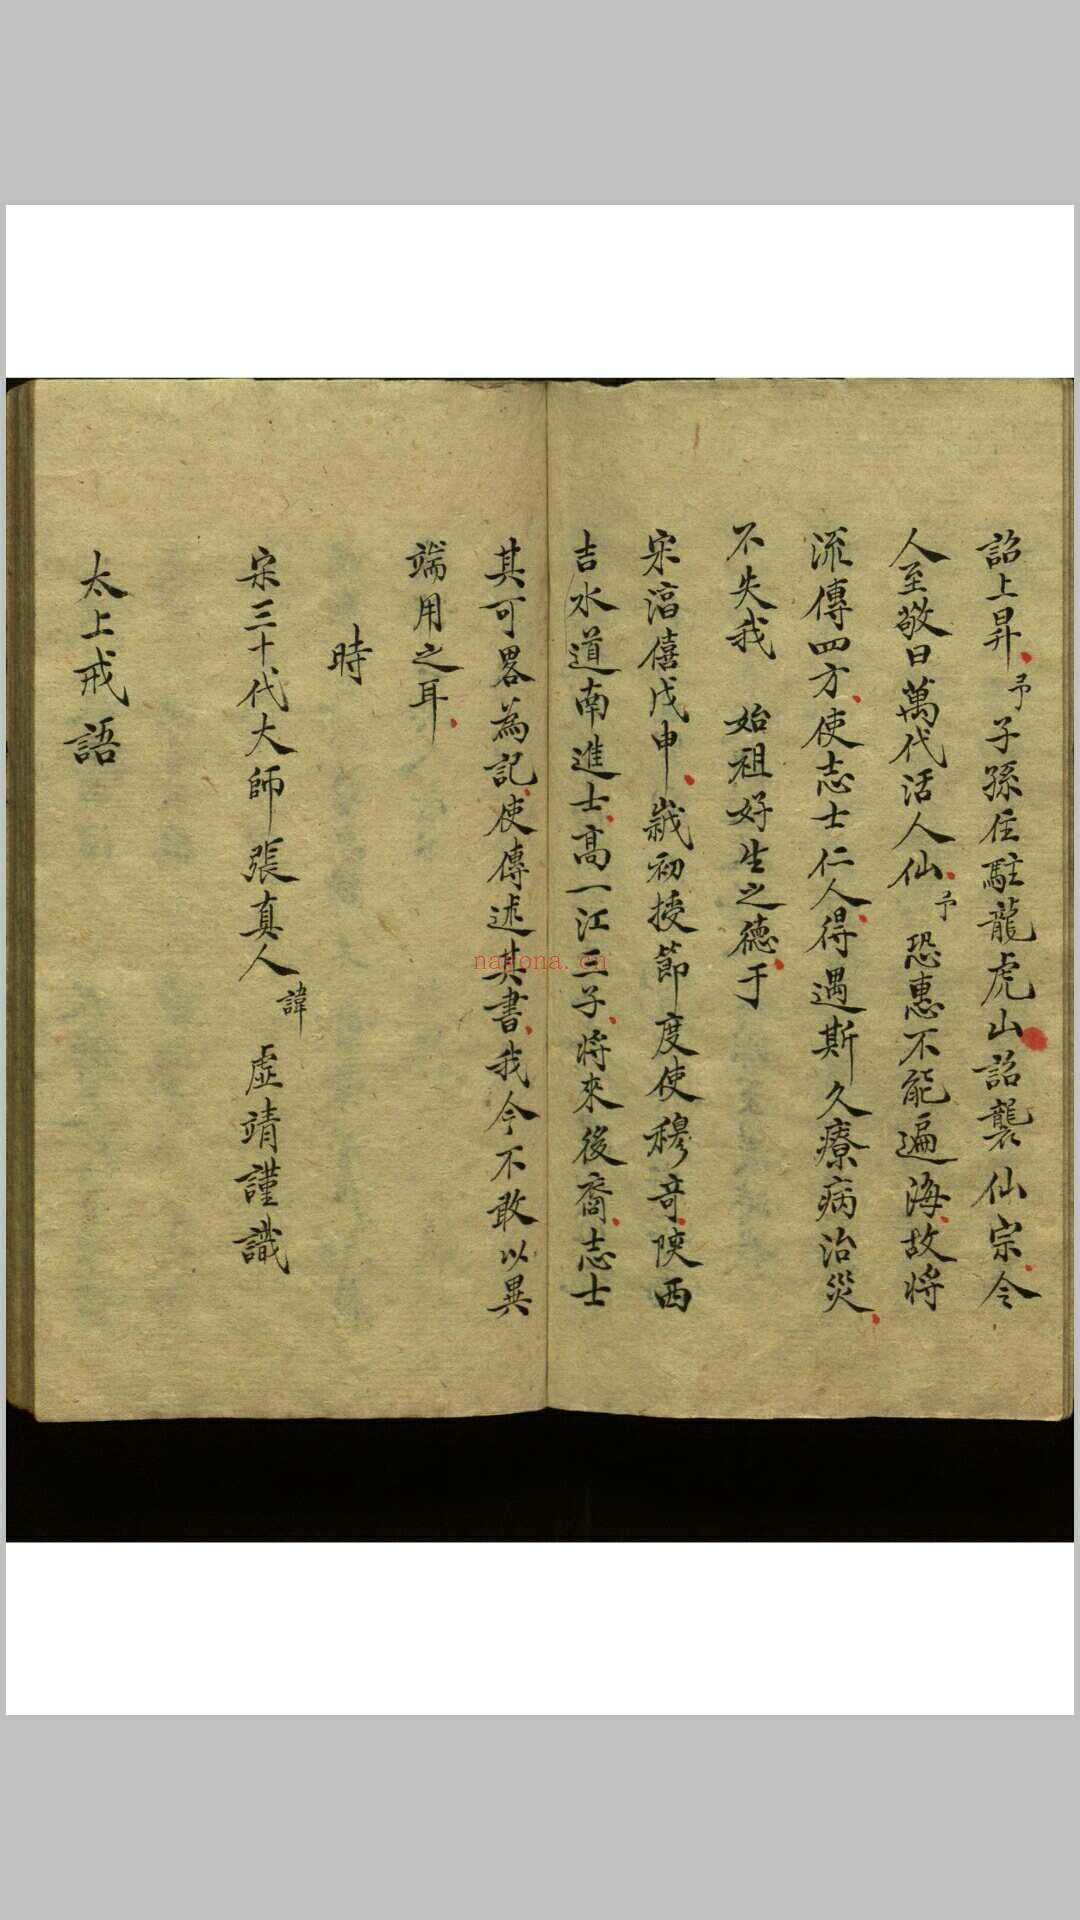 詔上昇予子孫住駐龍虎山詔襲仙宗令
人至敬曰萬代活人仙予恐惠不能遍海故將
流傳四方使志士仁人得遇斯久療病治災
不失我 始祖好生之德于
宋淳僖戊申歲初授節度使穆奇陝西
吉水道南進士高一江三子將來後裔志士
其可畧為記使傳述其書我今不敢以異
端用之耳
時
宋三十代大師張真人諱 虛靖謹識
太上戒語
nayona.cn